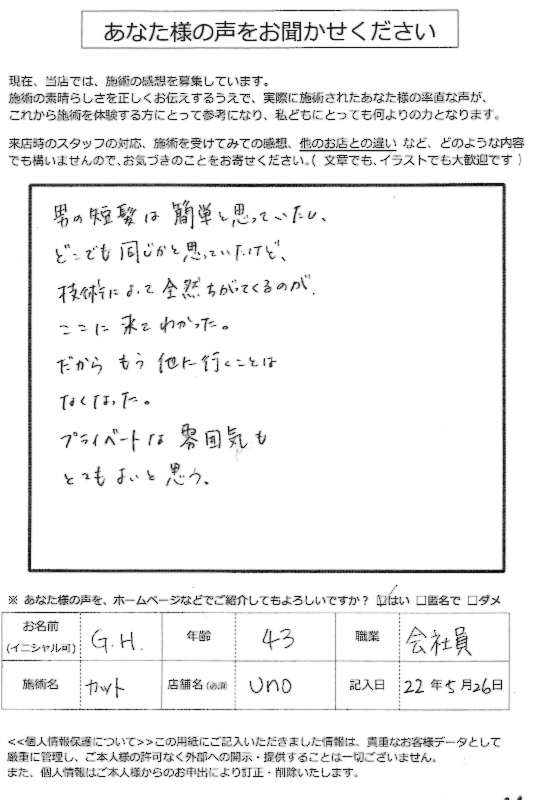 あなた様の声をお聞かせください
現在、当店では、施術の感想を募集しています。
施術の素晴らしさを正しくお伝えするうえで、実際に施術されたあなた様の率直な声が、
これから施術を体験する方にとって参考になり、私どもにとっても何よりの力となります。
来店時のスタッフの対応、施術を受けてみての感想、他のお店との違い など、どのような内容
でも構いませんので、お気づきのことをお寄せください。( 文章でも、イラストでも大歓迎です )
男の短髪は 簡単と思っていたし、
どこでも 同じかと思っていたけど、
技術によって 全然ちがってくるのが、
ここに 来て わかった。
だから もう 他に行くことは
なくなった。
プライベートな 雰囲気も
とてもよいと 思う。
※ あなた様の声を、ホームページなどでご紹介してもよろしいですか? ☑はい □匿名で □ダメ
お名前 (イニシャル可) G.H. 年齢 43 職業 会社員
施術名 カット 店舗名(必須) uno 記入日 22 年 5 月 26 日
<<個人情報保護について>>この用紙にご記入いただきました情報は、貴重なお客様データとして
厳重に管理し、ご本人様の許可なく外部への開示・提供することは一切ございません。
また、個人情報はご本人様からのお申出により訂正・削除いたします。